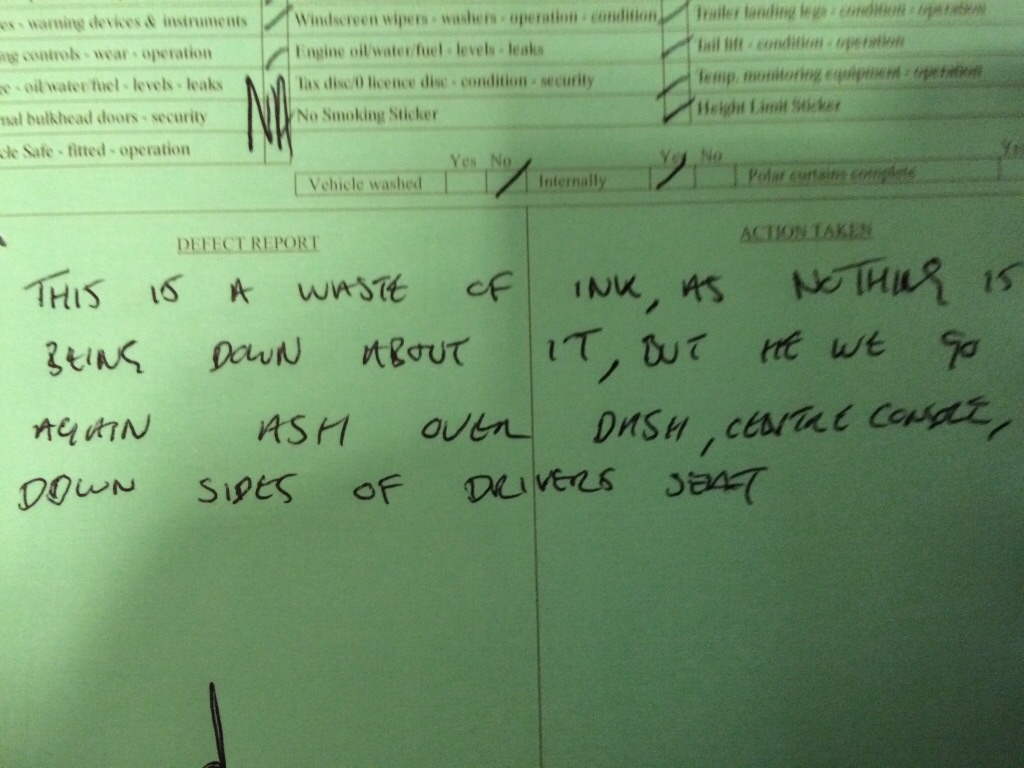 es - warning devices & instruments
Windscreen wipers - washers - operation - condition
Trailer landing legs - condition - operation
ng controls - wear - operation
Engine oil/water/fuel - levels - leaks
Tail lift - condition - operation
e - oil/water/fuel - levels - leaks
Tax disc/0 licence disc - condition - security
Temp. monitoring equipment - operation
nal bulkhead doors - security
NA
No Smoking Sticker
Height Limit Sticker
cle Safe - fitted - operation
Yes No
Yes No
Ye
Vehicle washed
Internally
Polar curtains complete
DEFECT REPORT
ACTION TAKEN
THIS IS A WASTE OF INK, AS NOTHING IS
BEING DOWN ABOUT IT, BUT HE WE GO
AGAIN ASH OVER DASH, CENTRE CONSOLE,
DOWN SIDES OF DRIVERS SEAT